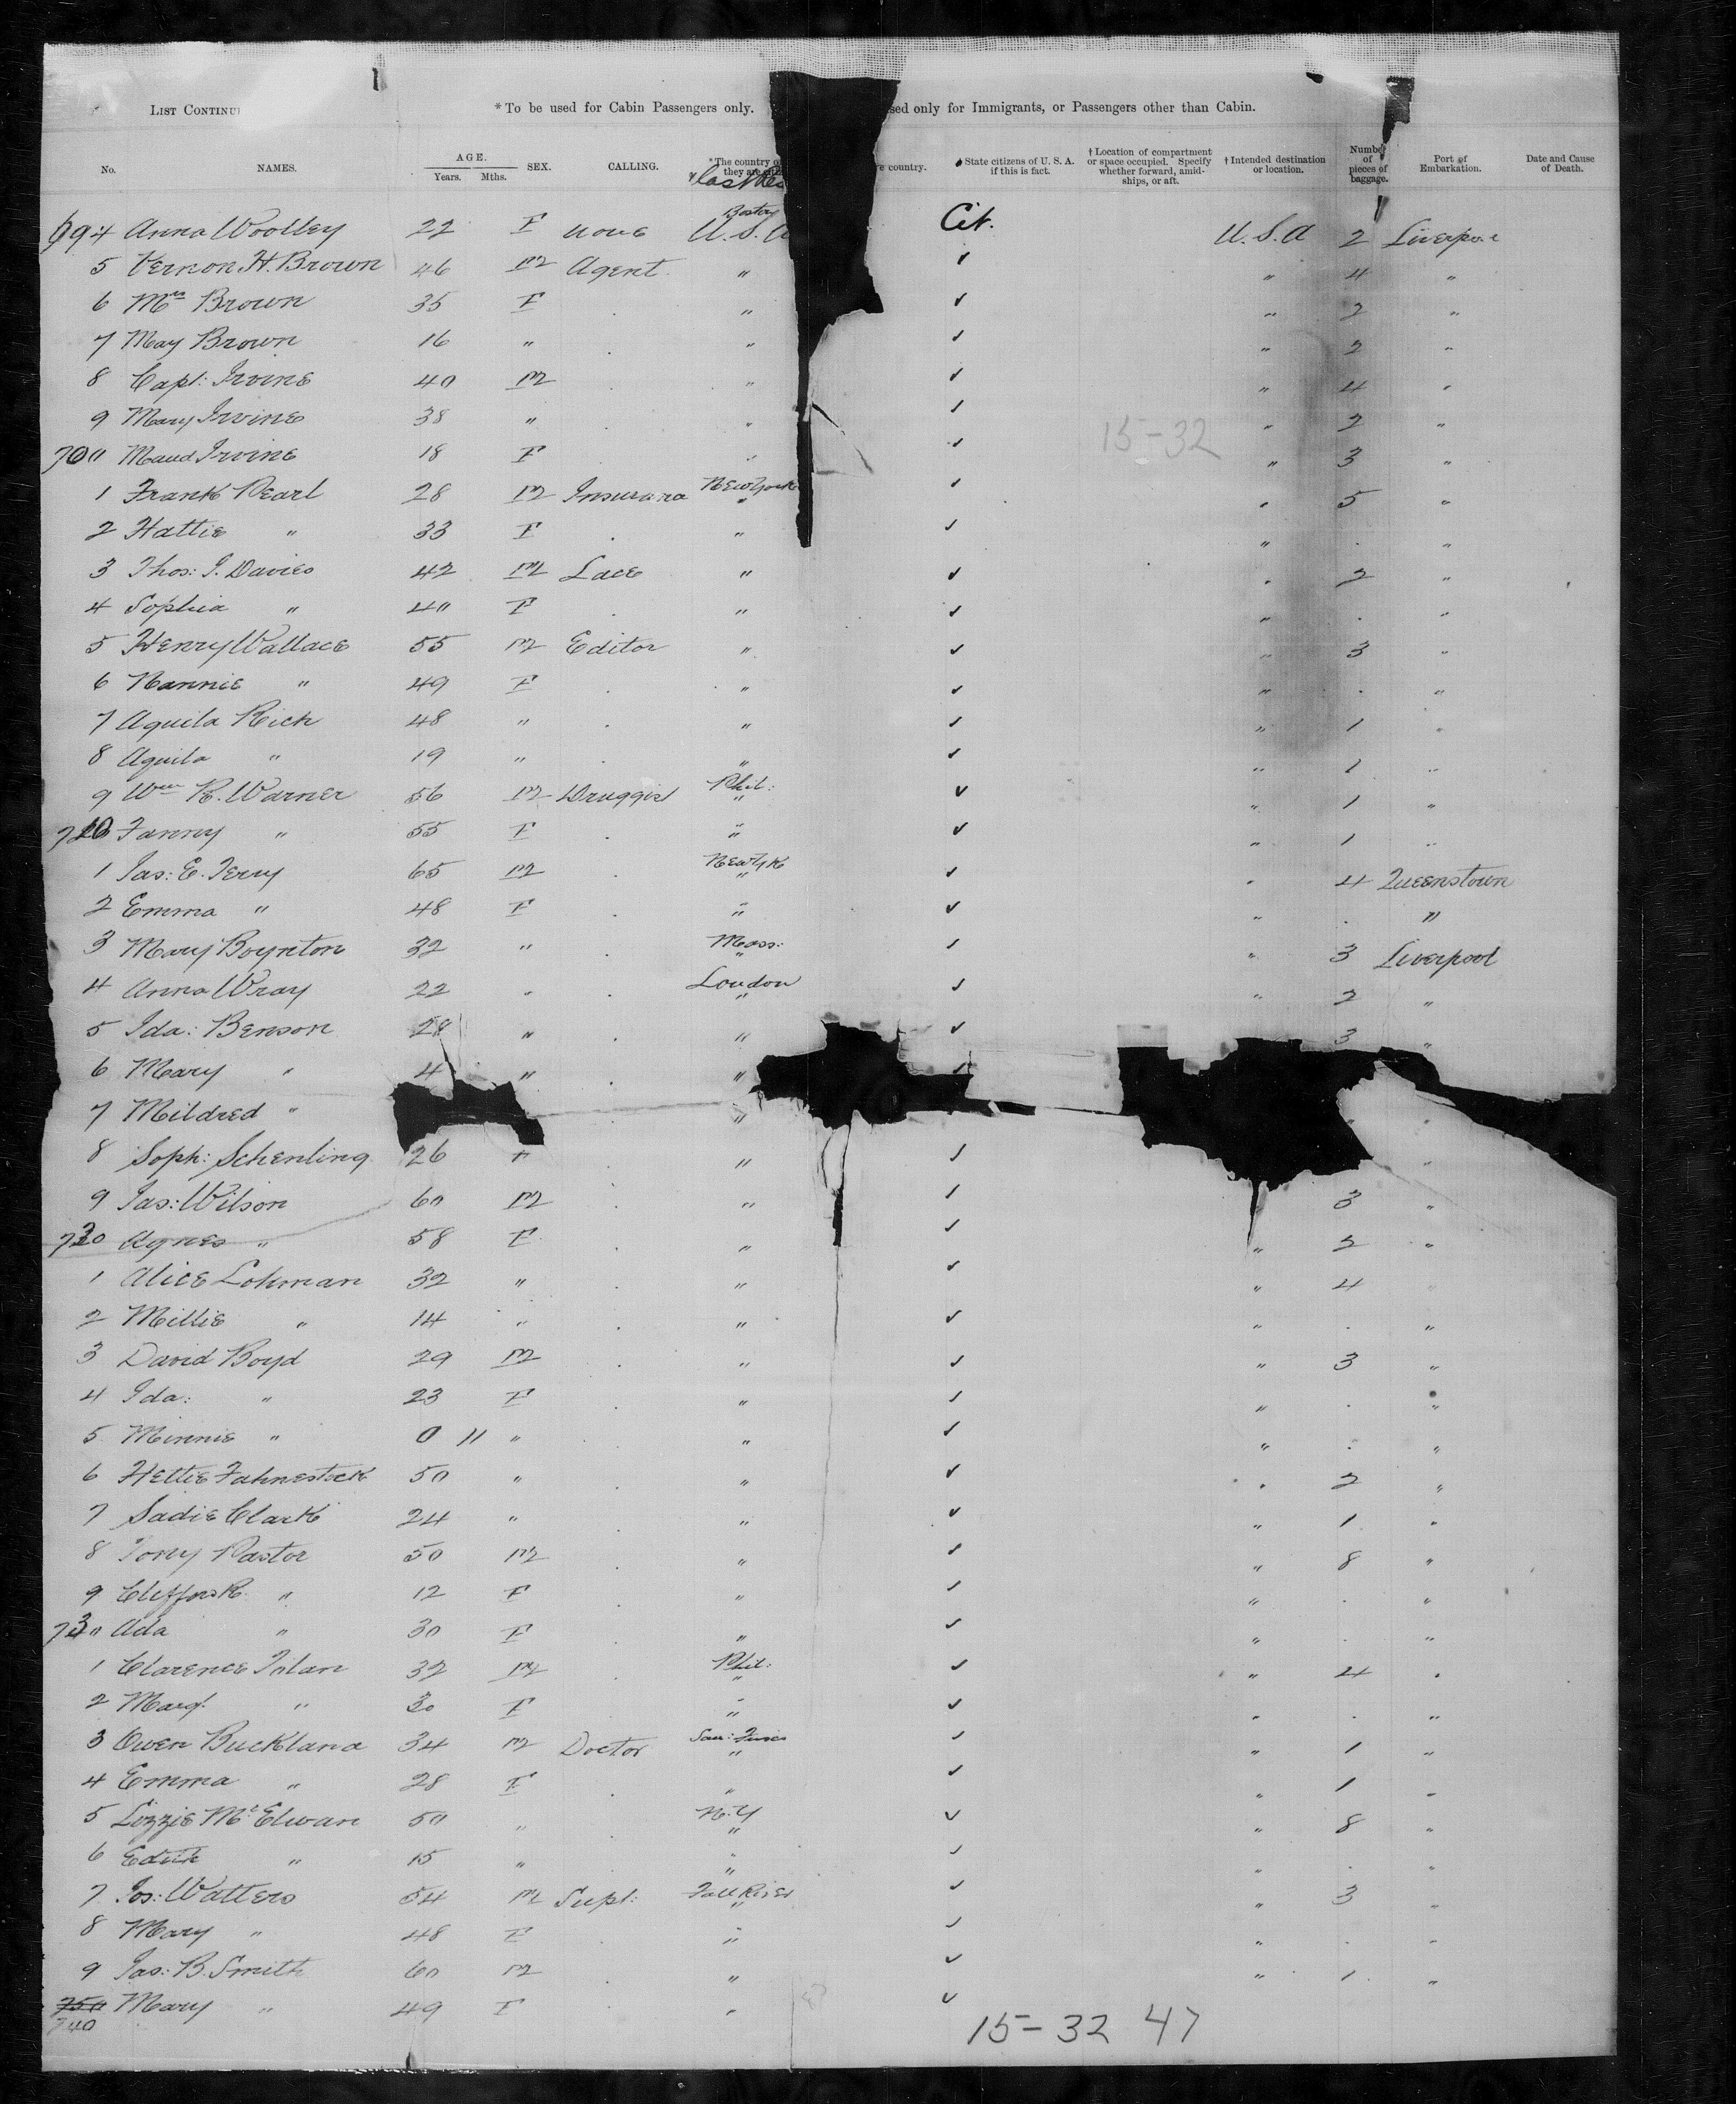 LIST CONTINU
* To be used for Cabin Passengers only.
sed only for Immigrants, or Passengers other than Cabin.
No. NAMES. AGE. Years. Mths. SEX. CALLING. * The country o they are † State citizens of U. S. A. if this is fact. † Location of compartment or space occupied. Specify whether forward, amidships, or aft. † Intended destination or location. Number of pieces of baggage. Port of Embarkation. Date and Cause of Death.
e country.
last Res
694 Anna Woolley 22 F none Boston U.S.A Cit. U.S.A 2 Liverpool
5 Vernon H. Brown 46 M Agent " ✓ " 4 "
6 Mrs Brown 35 F " ✓ " 2 "
7 May Brown 16 " " ✓ " 2 "
8 Capt: Irvine 40 M " ✓ " 4 "
9 Mary Irvine 38 " " ✓ " 2 "
15-32
700 Maud Irvine 18 F " ✓ " 3 "
1 Frank Pearl 28 M Insurance New York " ✓ " 5 "
2 Hattie " 33 F . " ✓ " . "
3 Thos: J. Davies 42 M Lace " ✓ " 2 "
4 Sophia " 40 F . " ✓ " . "
5 Henry Wallace 55 M Editor " ✓ " 3 "
6 Nannie " 49 F . " ✓ " . "
7 Aquila Rich 48 " . " ✓ " 1 "
8 Aquila " 19 " . " ✓ " 1 "
9 Wm R. Warner 56 M Druggist Phil: " ✓ " 1 "
710 Fanny " 55 F . " ✓ " 1 "
1 Jas: E. Terry 65 M . New Yk " ✓ " 4 Queenstown
2 Emma " 48 F . " ✓ " . "
3 Mary Boynton 32 " . Mass: " ✓ " 3 Liverpool
4 Anna Wray 22 " . London " ✓ " 2 "
5 Ida: Benson 28 " . " ✓ 3 "
6 Mary " 4 " . "
7 Mildred " " " "
8 Soph: Schenling 26 " . " ✓ "
9 Jas: Wilson 60 M . " ✓ 3 "
720 Agnes " 58 F . " ✓ " 2 "
1 Alice Lohman 32 " . " ✓ " 4
2 Millie " 14 " . " ✓ " . "
3 David Boyd 29 M . " ✓ " 3 "
4 Ida: " 23 F . " ✓ " . "
5 Minnie " 0 11 " . " ✓ " . "
6 Hettie Fahnestock 50 " . " ✓ " 2 "
7 Sadie Clark 24 " . " ✓ " 1 "
8 Tony Pastor 50 M . " ✓ " 8 "
9 " 12 F . " ✓ " . "
730 Ada " 30 F . " ✓ " . "
1 Clarence Tolan 32 M . Phil: " ✓ " 4 "
2 Margt " 30 F . " ✓ " . "
3 Owen Buckland 34 M Doctor San: " ✓ " 1 "
4 Emma " 28 F . " ✓ " 1 "
5 Lizzie McElwan 50 " . N.Y " ✓ " 8 "
6 Edith " 15 " . " ✓ " . "
7 Jos: Watters 54 M Supt: Fall River " ✓ " 3 "
8 Mary " 48 F . " ✓ " . "
9 Jas: B. Smith 60 M . " ✓ " 1 "
750 Mary " 49 F . " ✓
740
15-32 47